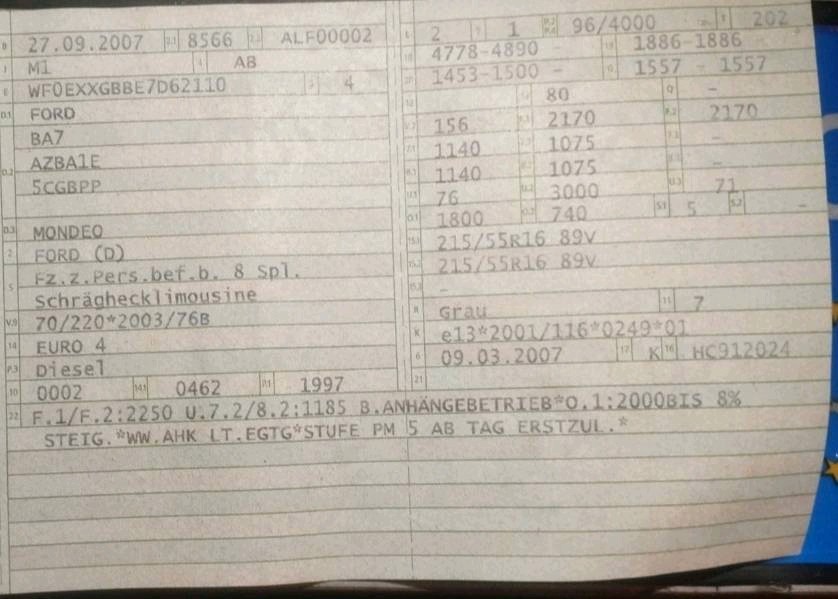 B 27.09.2007 2.1 8566 2.2 ALF00002
J M1 4 AB
E WF0EXXGBBE7D62110 3 4
D.1 FORD
D.2 BA7
AZBA1E
5CGBPP
D.3 MONDEO
2 FORD (D)
5 Fz.z.Pers.bef.b. 8 Spl.
Schräghecklimousine
V.9 70/220*2003/76B
14 EURO 4
P.3 Diesel
10 0002 14.1 0462 P.1 1997
22 F.1/F.2:2250 U.7.2/8.2:1185 B.ANHÄNGEBETRIEB*O.1:2000BIS 8%
STEIG.*WW.AHK LT.EGTG*STUFE PM 5 AB TAG ERSTZUL.*
L 2 9 1 P.2 P.4 96/4000 T 202
18 4778-4890 - 19 1886-1886
20 1453-1500 - G 1557 - 1557
12 - 13 80 Q -
V.7 156 F.1 2170 F.2 2170
7.1 1140 7.2 1075 7.3 -
8.1 1140 8.2 1075 8.3 -
U.1 76 U.2 3000 U.3 71
O.1 1800 O.2 740 S.1 5 S.2 -
15.1 215/55R16 89V
15.2 215/55R16 89V
15.3 -
R Grau 11 7
K e13*2001/116*0249*01
6 09.03.2007 17 K 16 HC912024
21